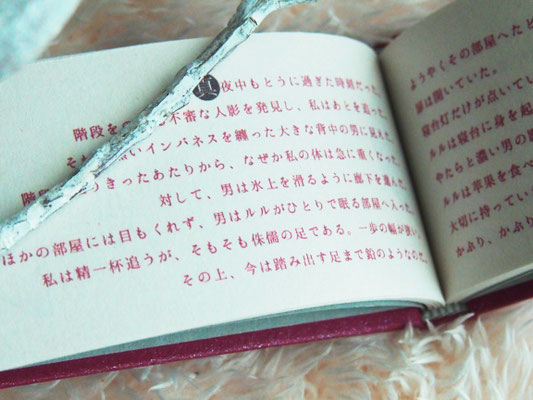 真夜中もとうに過ぎた時刻だった。
階段を不審な人影を発見し、私はあとを追った。
いインバネスを纏った大きな背中の男に見えた。
階きったあたりから、なぜか私の体は急に重くなった。
対して、男は氷上を滑るように廊下を進んだ。
ほかの部屋には目もくれず、男はルルがひとりで眠る部屋へ入った。
私は精一杯追うが、そもそも侏儒の足である。一歩の幅が
その上、今は踏み出す足まで鉛のようなのだ。
ようやくその部屋へたど
扉は開いていた。
寝台灯だけが点いてい
ルルは寝台に身を起
やたらと濃い男の
ルルは苹果を食べ
大切に持ってい
かぷり、かぷり